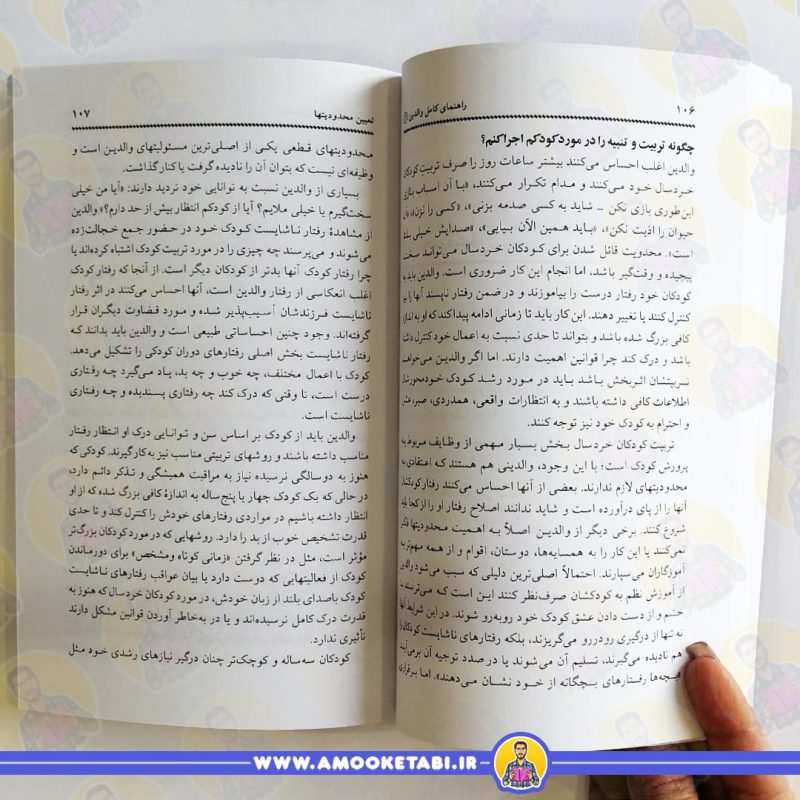 ۱۰۶ راهنمای کامل والدین
چگونه تربیت و تنبیه را در مورد کودکم اجرا کنم؟
والدین اغلب احساس می‌کنند بیشتر ساعات روز را صرف تربیت کودکان
خردسال خود می‌کنند و مدام تکرار می‌کنند، «با آن اسباب بازی
این‌طوری بازی نکن ـ شاید به کسی صدمه بزنی»، «کسی را نزن»، «آن
حیوان را اذیت نکن»، «باید همین الآن بیایی»، «صدایش خیلی بلند
است». محدودیت قائل شدن برای کودکان خردسال می‌تواند سخت
پیچیده و وقت‌گیر باشد، اما انجام این کار ضروری است. والدین باید به
کودکان خود رفتار درست را بیاموزند و در ضمن رفتار ناپسند آنها را نیز
کنترل کنند یا تغییر دهند. این کار باید تا زمانی ادامه پیدا کند که او به اندازه
کافی بزرگ شده باشد و بتواند تا حدی نسبت به اعمال خود کنترل داشته
باشد و درک کند چرا قوانین اهمیت دارند. اما اگر والدین می‌خواهند
تربیتشان اثربخش باشد باید در مورد رشد کودک خود
اطلاعات کافی داشته باشند و به انتظارات واقعی، همدردی، صبر، عشق
و احترام به کودک خود نیز توجه کنند.
تربیت کودکان خردسال بخش بسیار مهمی از وظایف مربوط به
پرورش کودک است؛ با این وجود، والدینی هم هستند که اعتقادی به
محدودیتهای لازم ندارند. بعضی از آنها احساس می‌کنند رفتار کودکان
آنها را از پای درآورده است و شاید ندانند اصلاح رفتار او را از کجا باید
شروع کنند. برخی دیگر از والدین اصلاً به اهمیت محدودیتها فکر
نمی‌کنند یا این کار را به همسایه‌ها، دوستان، اقوام و از همه مهم‌تر به
آموزگاران می‌سپارند. احتمالاً اصلی‌ترین دلیلی که سبب می‌شود والدین
از آموزش نظم به کودکشان صرف‌نظر کنند این است که می‌ترسند با
خشم و از دست دادن عشق کودک خود روبه‌رو شوند. در این شرایط آنها
نه تنها از درگیری رودررو می‌گریزند، بلکه رفتارهای ناشایست کودکان را
هم نادیده می‌گیرند، تسلیم آن می‌شوند یا در صدد توجیه آن برمی‌آیند
«بچه‌ها رفتارهای بچگانه از خود نشان می‌دهند». اما برقراری
تعیین محدودیتها ۱۰۷
محدودیتهای قطعی یکی از اصلی‌ترین مسئولیتهای والدین است و
وظیفه‌ای نیست که بتوان آن را نادیده گرفت یا کنار گذاشت.
بسیاری از والدین نسبت به توانایی خود تردید دارند: «آیا من خیلی
سخت‌گیرم یا خیلی ملایم؟ آیا از کودکم انتظار بیش از حد دارم؟» والدین
از مشاهدهٔ رفتار ناشایست کودک خود در حضور جمع خجالت‌زده
می‌شوند و می‌پرسند چه چیزی را در مورد تربیت کودک اشتباه کرده‌اند یا
چرا رفتار کودک آنها بدتر از کودکان دیگر است. از آنجا که رفتار کودک
اغلب انعکاسی از رفتار والدین است، آنها احساس می‌کنند در اثر رفتار
ناشایست فرزندشان آسیب‌پذیر شده و مورد قضاوت دیگران قرار
گرفته‌اند. وجود چنین احساساتی طبیعی است و والدین باید بدانند که
رفتار ناشایست بخش اصلی رفتارهای دوران کودکی را تشکیل می‌دهد.
کودک با اعمال مختلف، چه خوب و چه بد، یاد می‌گیرد چه رفتاری
درست است، تا وقتی که درک کند چه رفتاری پسندیده و چه رفتاری
ناشایست است.
والدین باید از کودک بر اساس سن و توانایی درک او انتظار رفتار
مناسب داشته باشند و روشهای تربیتی مناسب نیز به کار گیرند. کودکی که
هنوز به دوسالگی نرسیده نیاز به مراقبت همیشگی و تذکر دائم دارد،
در حالی که یک کودک چهار یا پنج‌ساله به اندازهٔ کافی بزرگ شده که از او
انتظار داشته باشیم در مواردی رفتارهای خودش را کنترل کند و تا حدی
قدرت تشخیص خوب از بد را دارد. روشهایی که در مورد کودکان بزرگ‌تر
مؤثر است، مثل در نظر گرفتن «زمانی کوتاه و مشخص» برای دورماندن
کودک از فعالیتهایی که دوست دارد یا بیان عواقب رفتارهای ناشایست
کودک با صدای بلند از زبان خودش، در مورد کودکان خردسال که هنوز به
قدرت درک کامل نرسیده‌اند و یا در به‌خاطر آوردن قوانین مشکل دارند
تأثیری ندارد.
کودکان سه‌ساله و کوچک‌تر چنان درگیر نیازهای رشدی خود مثل
WWW.AMOOKETABI.IR